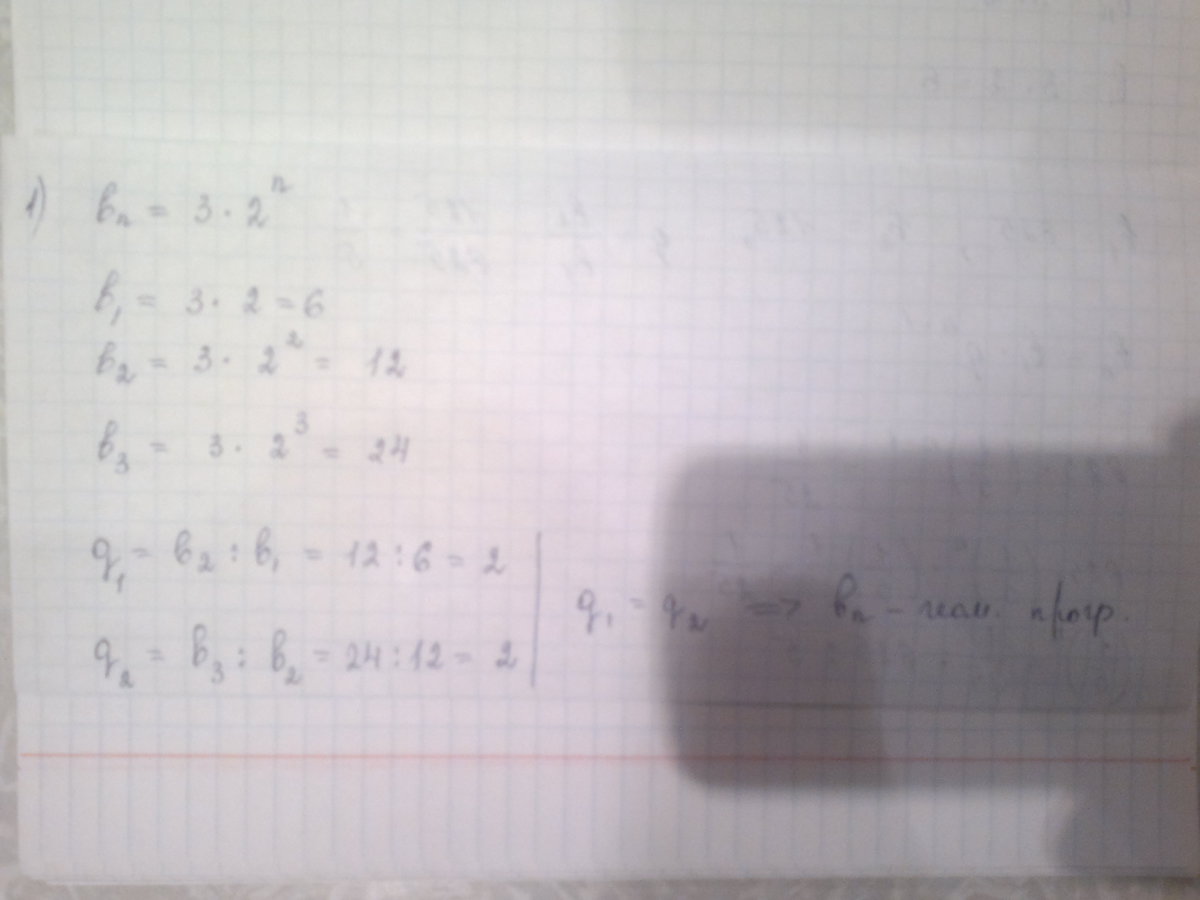 1) bₙ = 3 · 2ⁿ
b₁ = 3 · 2 = 6
b₂ = 3 · 2² = 12
b₃ = 3 · 2³ = 24
q₁ = b₂ : b₁ = 12 : 6 = 2
q₂ = b₃ : b₂ = 24 : 12 = 2
q₁ = q₂ => bₙ – геом. прогр.